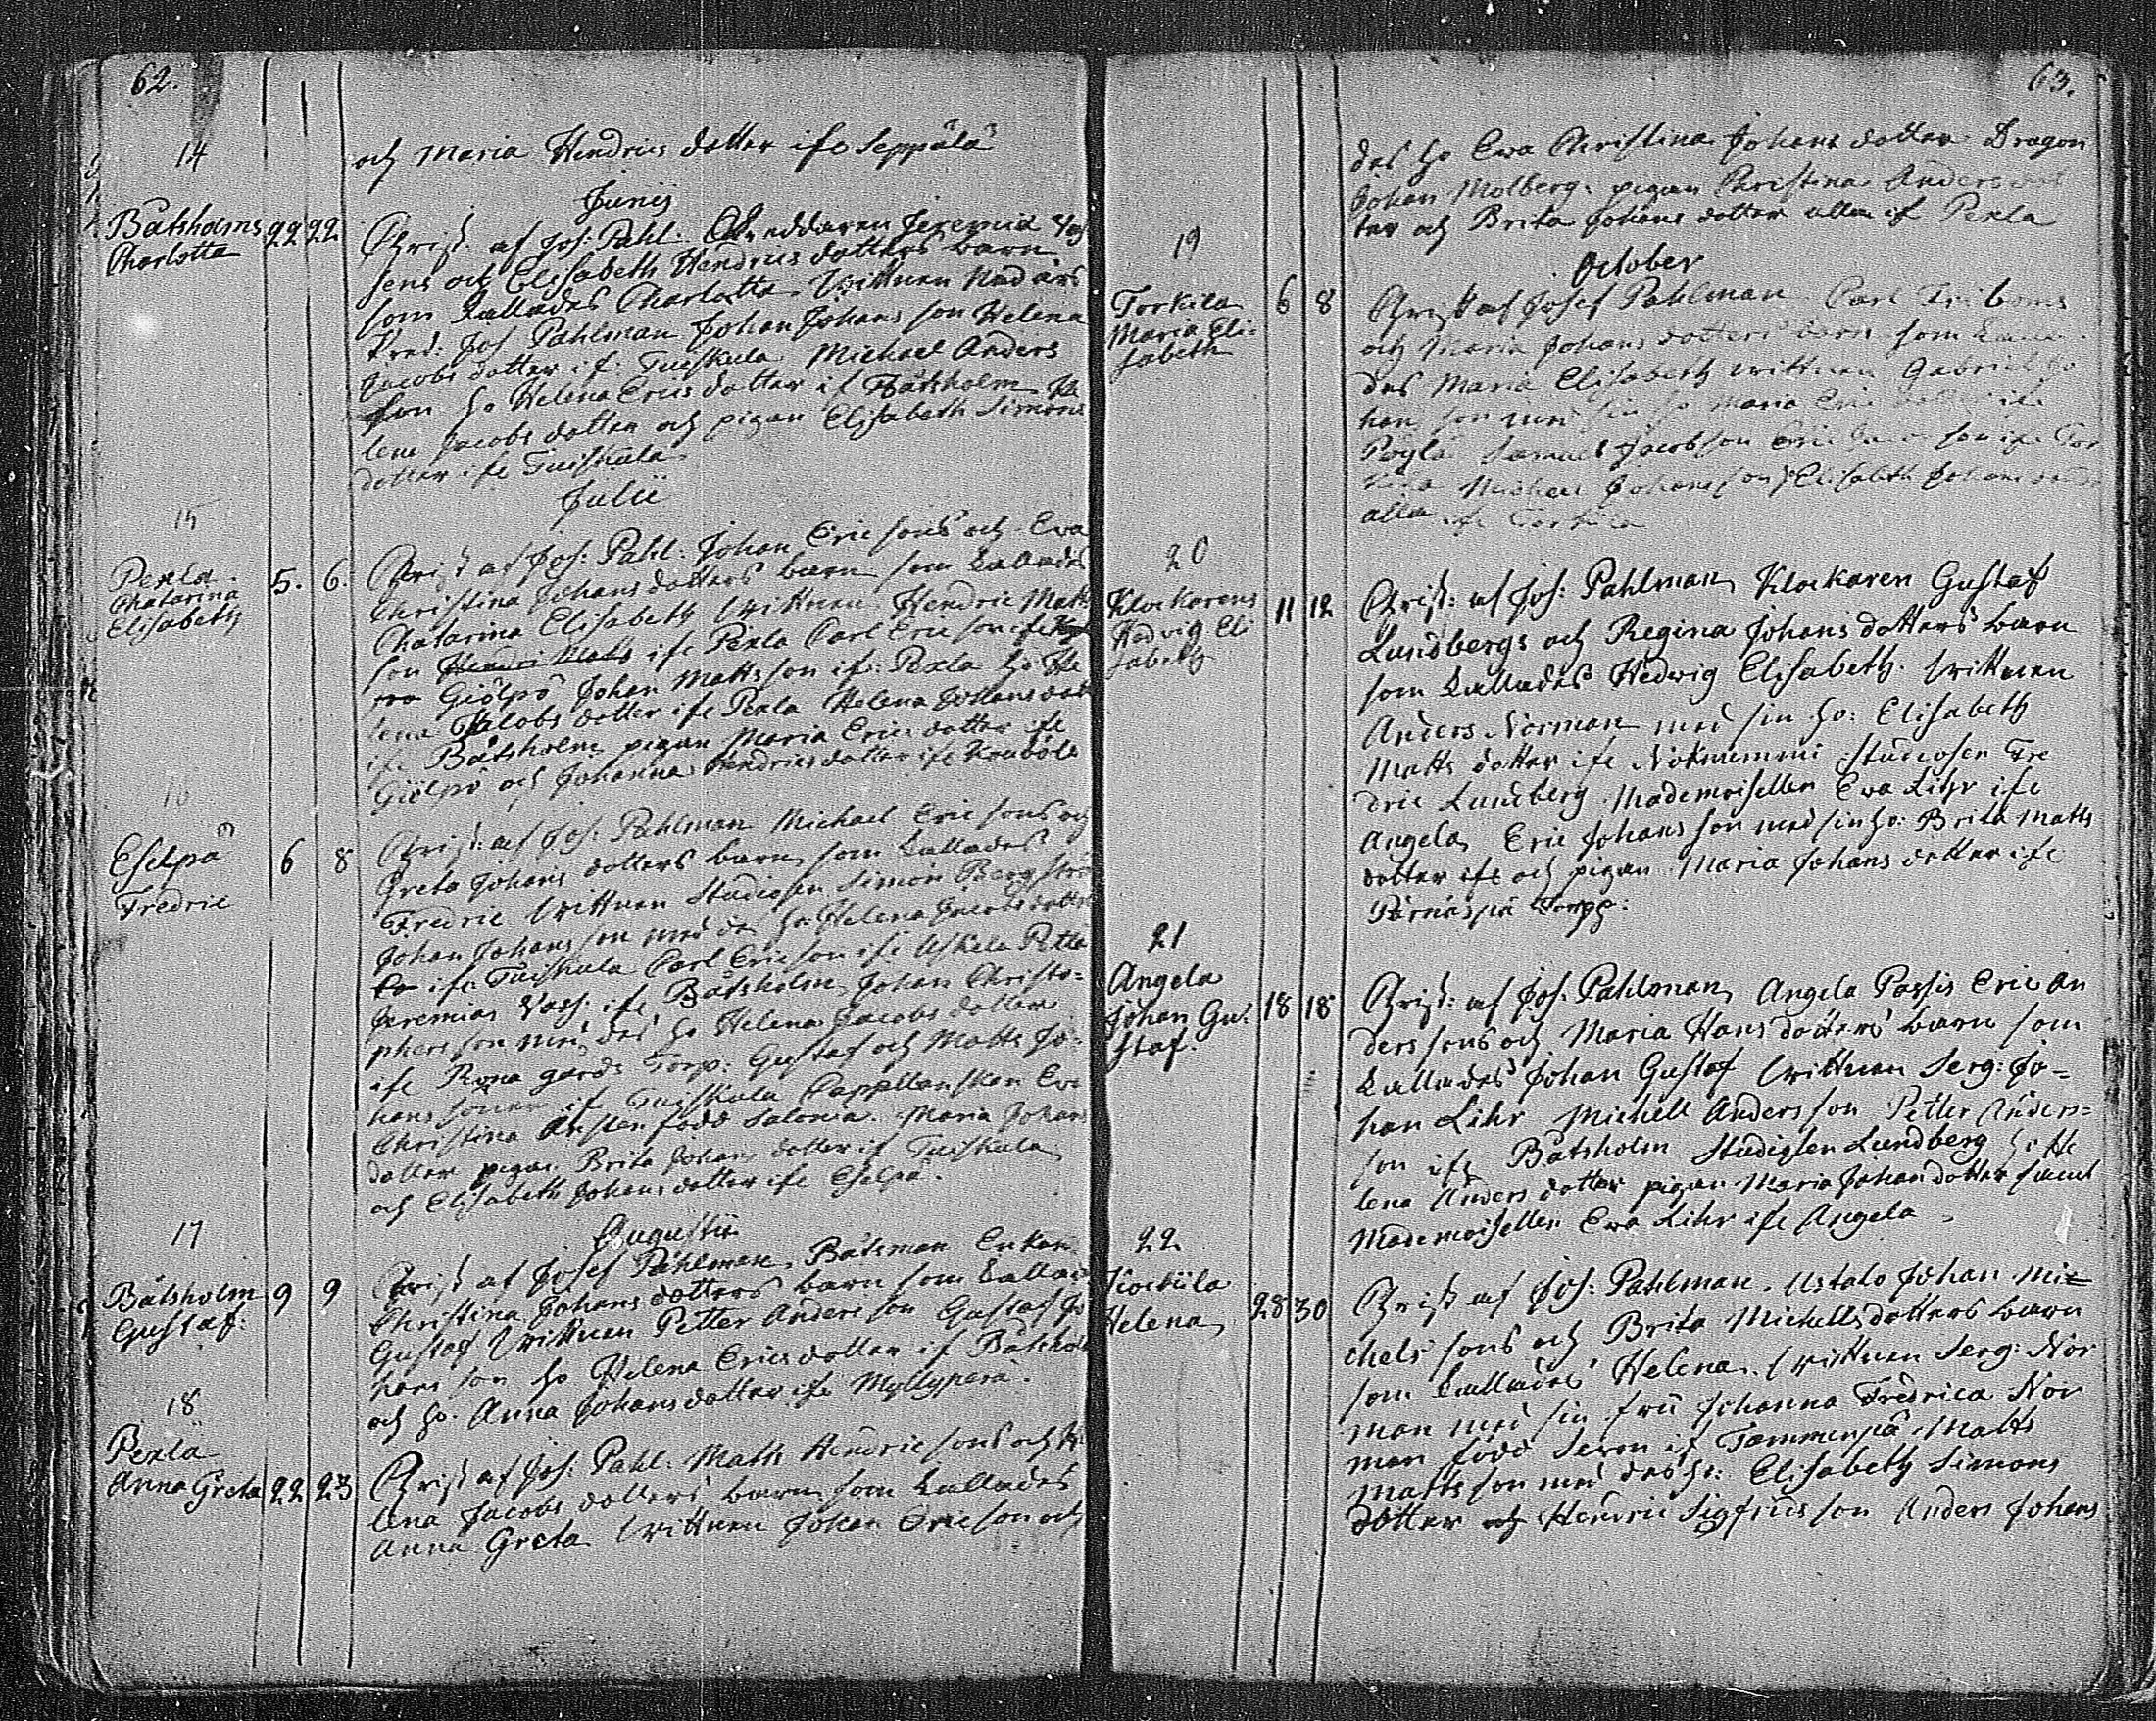 62.
14
och Maria Hindrics dotter ifr Seppälä
Junij
Båtsholms 22 22
Charlotta
Christ. af Jos: Pahl. Jeremia
sens och Elisabeth Hendrics dotters barn
som kallades Charlotta. Wittnen
Jos Pahlman Johan Johans son Helena
Jacobs dotter if. Tuiskula Michael Anders
son ho Helena Erics dotter if Båtsholm He
lena Jacobs dotter och pigan Elisabeth Simons
dotter ifr Tuiskula
Julii
15
Pexla 5. 6.
Chatarina
Elisabeth
Christ af Jos: Pahl: Johan Ericsons och Ewa
Christina Johans dotters barn som kallades
Chatarina Elisabeth Wittnen Hendric Matts
son Hendric Matts ifr Pexla Carl Ericson ifr
Giölpö Johan Matts son ifr: Pexla ho He
lena Jacobs dotter ifr Pexla Helena Johans dott
ifr Båtsholm pigan Maria Erics dotter ifr
Giölpö och Johanna Hendricsdotter ifr
16
Eselpä 6 8
Fredric
Christ: af Jos: Pahlman Michael Ericsons och
Greta Johans dotters barn som kallades
Fredric Wittnen Studiosen Simon Bergströ
Johan Johans son med des ho Helena Jacobs dotter
ifr Tuiskula Carl Ericson ifr Petter
Jeremias ifr Båtsholm Johan Christo-
phers son med des ho Helena Jacobs dotter
ifr gårds Torp: Gustaf och Matts Jo-
hans söner if Tuiskula Cappellanskan Ew
Christina född Salonia. Maria Johans
dotter pigan Brita Johans dotter if Tuiskula
och Elisabeth Johans dotter ifr Eselpä.
Augustii
17
Båtsholm 9 9
Gustaf:
Christ af Josef Påhlman. Båtsman Enkan
Christina Johans dotters barn som kallad
Gustaf Wittnen Petter Anderson Gustaf Jo
hans son ho Helena Ericsdotter if Båtshol
och ho. Anna Johans dotter ifr Myllyperä.
18
Pexla
Anna Greta 22 23
Christ af Jos: Pahl. Matts Hendricsons och He
lena Jacobs dotters barn som kallades
Anna Greta Wittnen Johan Ericson och
63.
des ho Ewa Christina Johans dotter Dragon
Johan Molberg. pigan Christina Anders dot
ter och Brita Johans dotter alla if Pexla
19
October
Torkila 6 8
Maria Eli-
sabeth
Christ af Josef Pahlman Carl
och Maria Johans dotters barn som kalla
des Maria Elisabeth Wittnen Gabriel Jo
hans son med sin ho Maria Eric dotter ifr
Samuel Jacobson Eric son ifr Tor
kila Michael Johans son Elisabeth Johans dotter
alla ifr Torkila
20
Klockarens 11 12
Hedvig Eli
sabeth
Christ: af Jos: Pahlman Klockaren Gustaf
Lundbergs och Regina Johans dotters barn
som kallades Hedwig Elisabeth. Wittnen
Anders Norman med sin ho: Elisabeth
Matts dotter ifr Nokniemmi studiosen Fre
dric Lundberg. Mademoisellen Ewa Lihr ifr
Angela Eric Johans son med sin ho: Brita Matts
dotter ifr och pigan Maria Johans dotter ifr
Pärnäspä Torp:
21
Angela
Johan Gu- 18 18
staf.
Christ: af Jos: Pahlman Angela Passis Eric An
ders sons och Maria Hans dotters barn som
kallades Johan Gustaf Wittnen Serg: Jo-
han Lihr Michell Anders son Petter Anders-
son ifr Båtsholm Studiosen Lundberg ho He
lena Anders dotter pigan Maria Johan dotter samt
Mademoisellen Ewa Lihr ifr Angela
22
Helena 28 30
Christ af Jos: Pahlman. Ustalo Johan Mi-
chels sons och Brita Michells dotters barn
som kallades Helena. Wittnen Serg: Nor
man med sin fru Johanna Fredrica Nor
man född Seron if Tammenpä Matts
Matts son med des ho: Elisabeth Simons
dotter och Hendric Sigfrids son Anders Johans